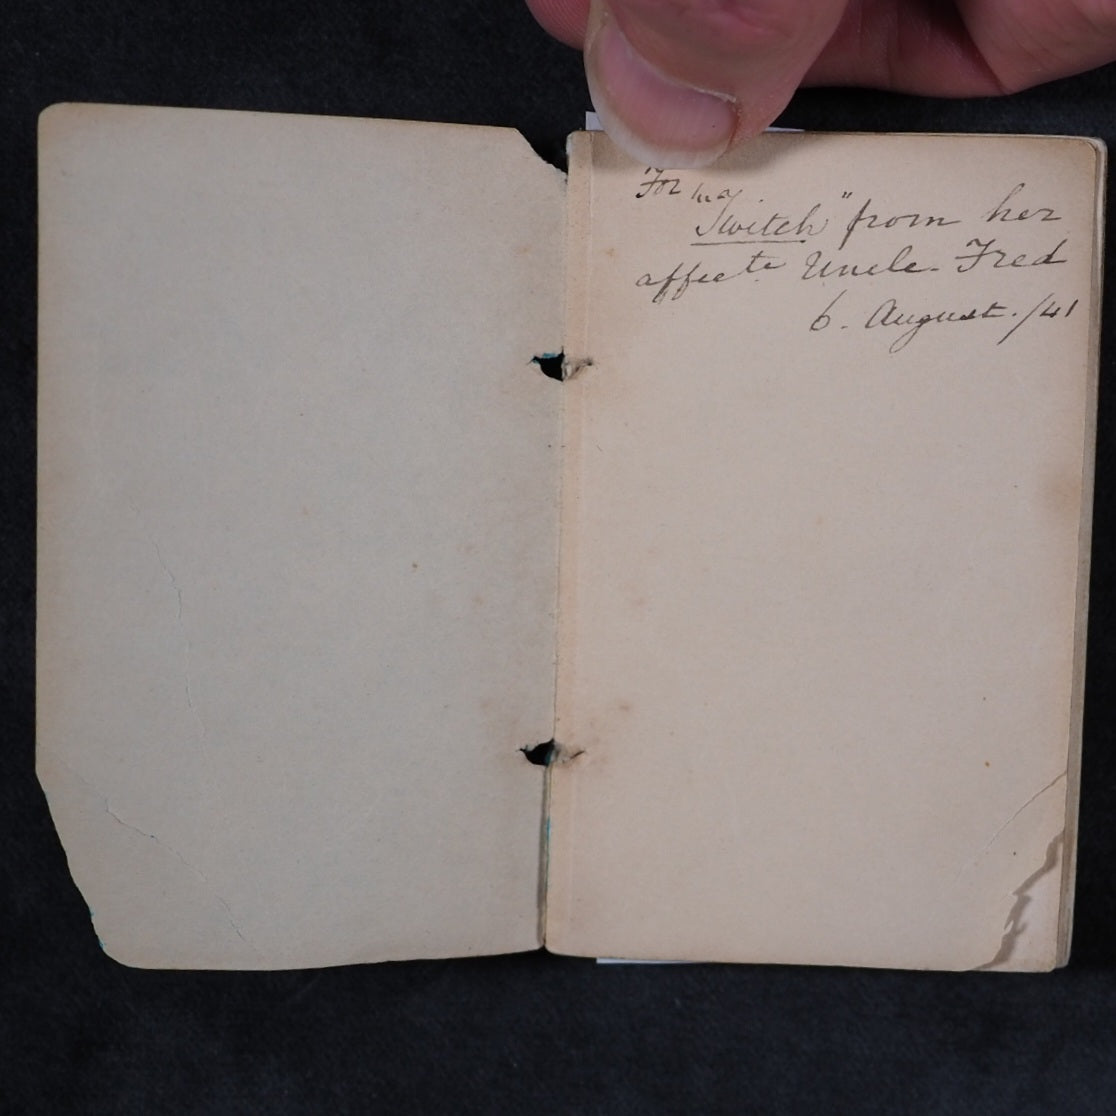 For
"Twitch" from her
affecte. Uncle. Fred
6. August. /41